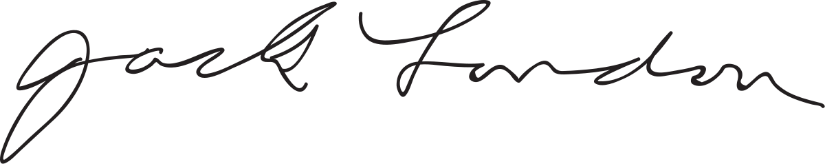 Jack London